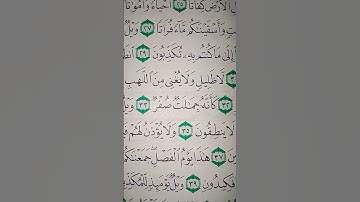 ٱلْأَرْضَ كِفَاتًا ٢٥ أَحْيَآءً وَأَمْوَٰتًا
وَأَسْقَيْنَٰكُم مَّآءً فُرَاتًا ٢٧ وَيْلٌ
إِلَىٰ مَا كُنتُم بِهِۦ تُكَذِّبُونَ ٢٩
لَّا ظَلِيلٍ وَلَا يُغْنِى مِنَ ٱللَّهَبِ
كَأَنَّهُۥ جِمَٰلَتٌ صُفْرٌ ٣٣
لَا يَنطِقُونَ ٣٥ وَلَا يُؤْذَنُ لَهُمْ
٣٧ هَٰذَا يَوْمُ ٱلْفَصْلِ ۖ جَمَعْنَٰكُ
فَكِيدُونِ ٣٩ وَيْلٌ يَوْمَئِذٍ لِّلْمُكَذِّ